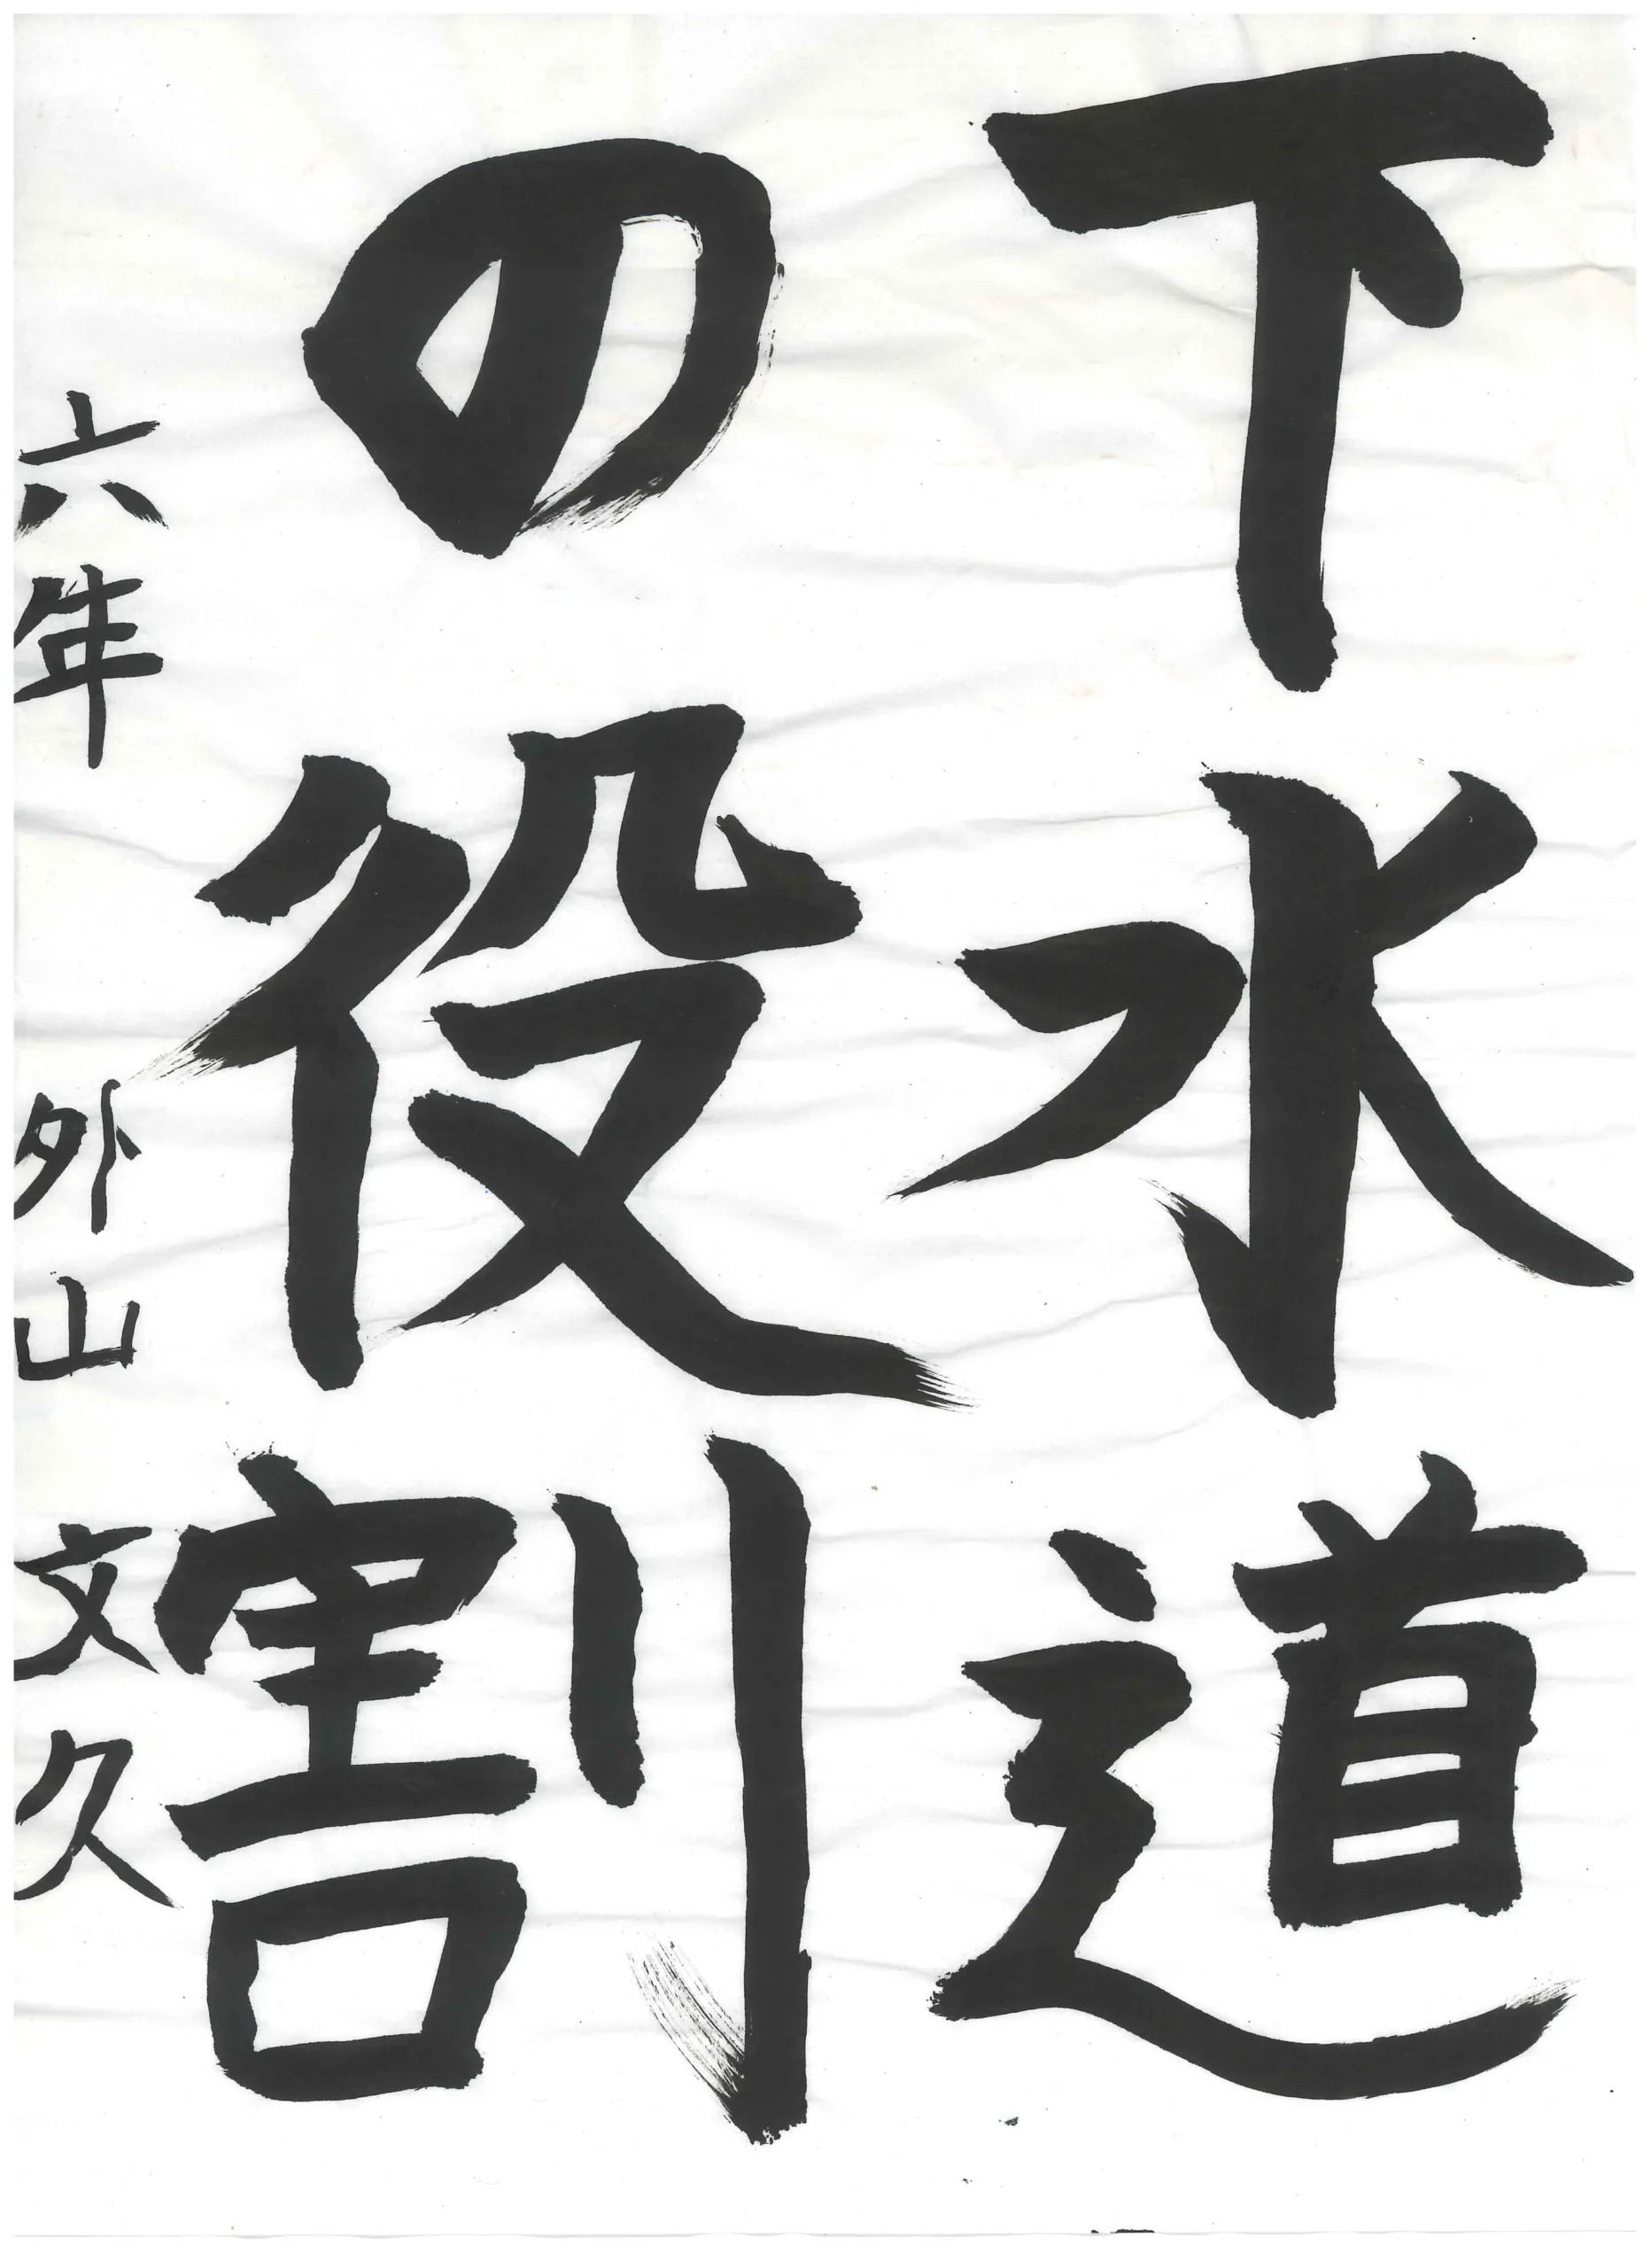 下水道
の役割
六年 外山 文久